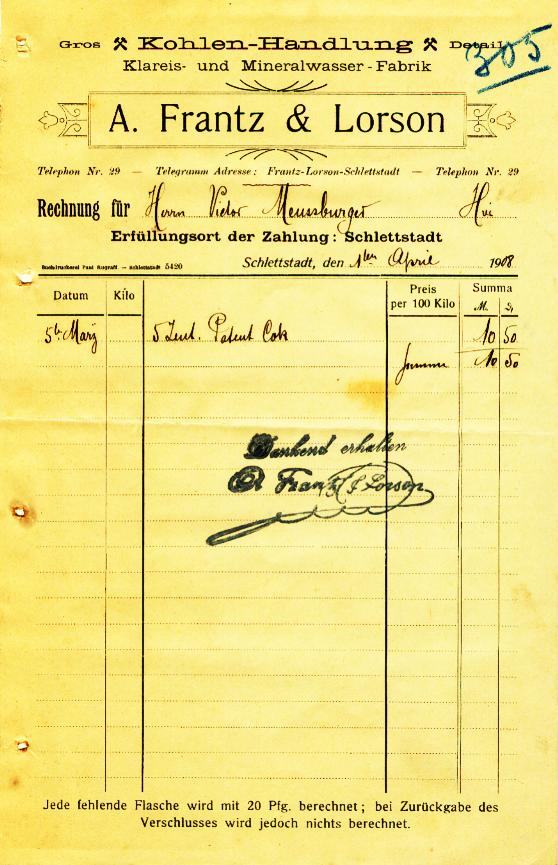 Gros ⚒ Kohlen-Handlung ⚒ Detail
305
Klareis- und Mineralwasser-Fabrik
A. Frantz & Lorson
Telephon Nr. 29 — Telegramm Adresse: Frantz-Lorson-Schlettstadt — Telephon Nr. 29
Rechnung für Herrn Victor Meussburger Hie
Erfüllungsort der Zahlung: Schlettstadt
Buchdruckerei Paul Kugraff — Schlettstadt 5420
Schlettstadt, den 1ten April 1908
Datum Kilo Preis per 100 Kilo Summa M. ₰
5ten März 5 Zent. Patent Cok 10 50
Summa 10 50
Dankend erhalten
A Frantz & Lorson
Jede fehlende Flasche wird mit 20 Pfg. berechnet; bei Zurückgabe des
Verschlusses wird jedoch nichts berechnet.